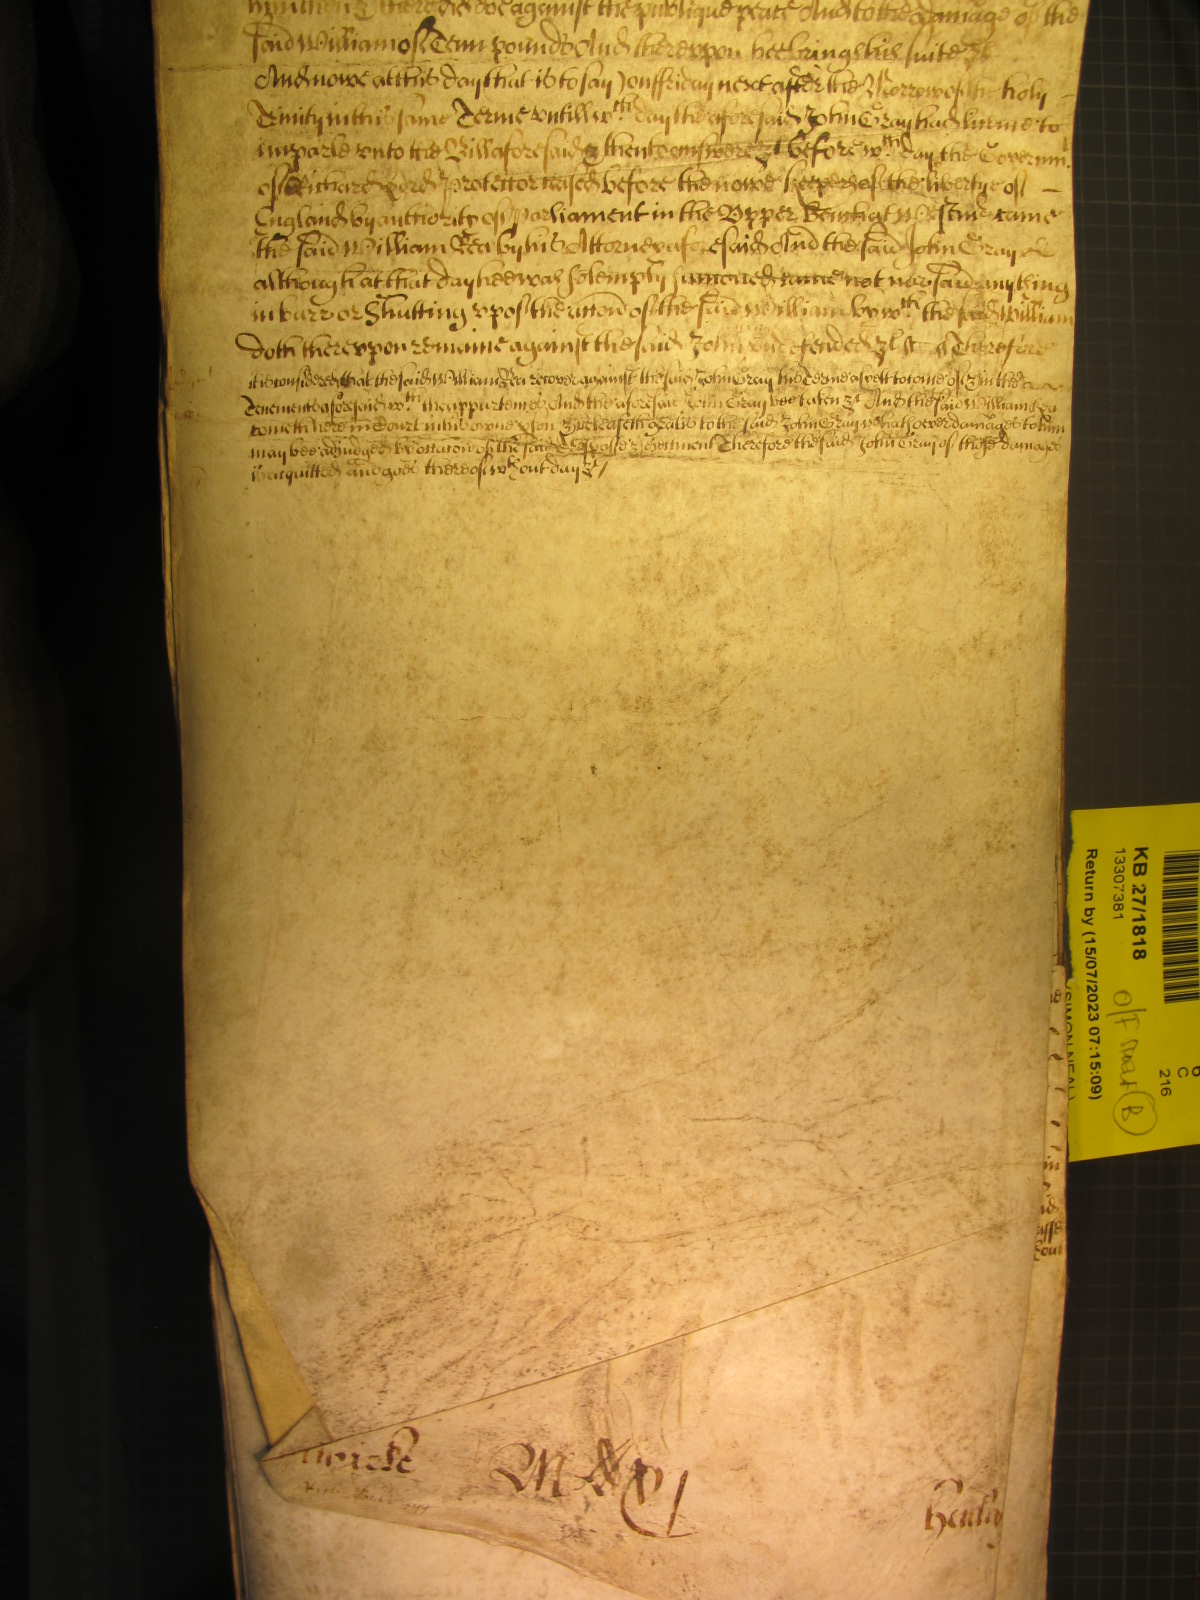 against the publique peace And to the damage of the
said William of Tenn pounds And thereupon hee brings his suite &c
And nowe at this day that is to say on ffriday next after the Morrow of the holy
Trinity in this same Terme untill wch day the aforesaid John Gray had licence to
imparle unto the Bill aforesaid & then to answere &c before wch day the Governmt
of Richard Lord Protector ceased before the nowe keepers of the liberty of
England by authority of Parliament in the Upper Bench at Westmr came
the said William Rea by his Attorney aforesaid And the said John Gray
although at that day hee was solemply sumoned came not nor said any thing
in barr or Shutting upp of the accon of the said William by wch the said William
doth thereupon remaine against the said John undefended &c Therefore
it is considered that the said William Rea recover against the said John Gray his Terme as yett to come of & in the
Tenements aforesaid wth the appurtences And the aforesaid John Gray bee taken &c And the said William Rea
cometh here in Court in his owne &c releaseth gratis to the said John Gray whatsoever damages to him
may bee adjudged by occasion of the said Trespasse & Ejectment Therefore the said John Gray of those damages
is acquitted and goes thereof wthout day &c
KB 27/1818
13307381
Return by (15/07/2023 07:15:09)
(SIMON NEAL)
C
216
B